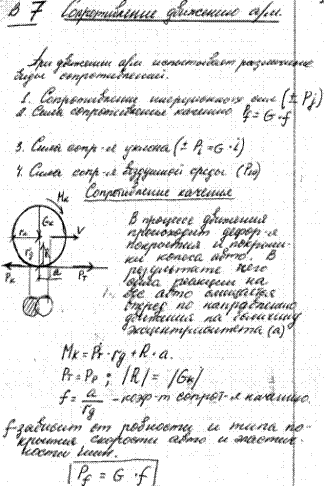 В 7 Сопротивление движению а/м.
При движении а/м испытывает различные
виды сопротивлений.
1. Сопротивление инерционных сил (± Pj)
2. Сила сопротивления качению Pf = G · f
3. Сила сопр-я уклона (± Pi = G · i)
4. Сила сопр-я воздушной среды. (Pw)
Сопротивление качения
Mк
Gк
V
rд
a
Pк
Pт
В процессе движения
происходит дефор-я
покрытия и покрыш-
ки колеса авто. В
результате чего
сила реакции на
авто смещается
вперед по направлению
движения на величину
эксцентриситета (a)
Mк = Pт · rд + R · a.
Pт = Pр ; |R| = |Gк|
f = a / rд – коэф-т сопрот-я качению.
f-зависит от ровности и типа по-
крытия скорости авто и эластич-
ности шин.
Pf = G · f